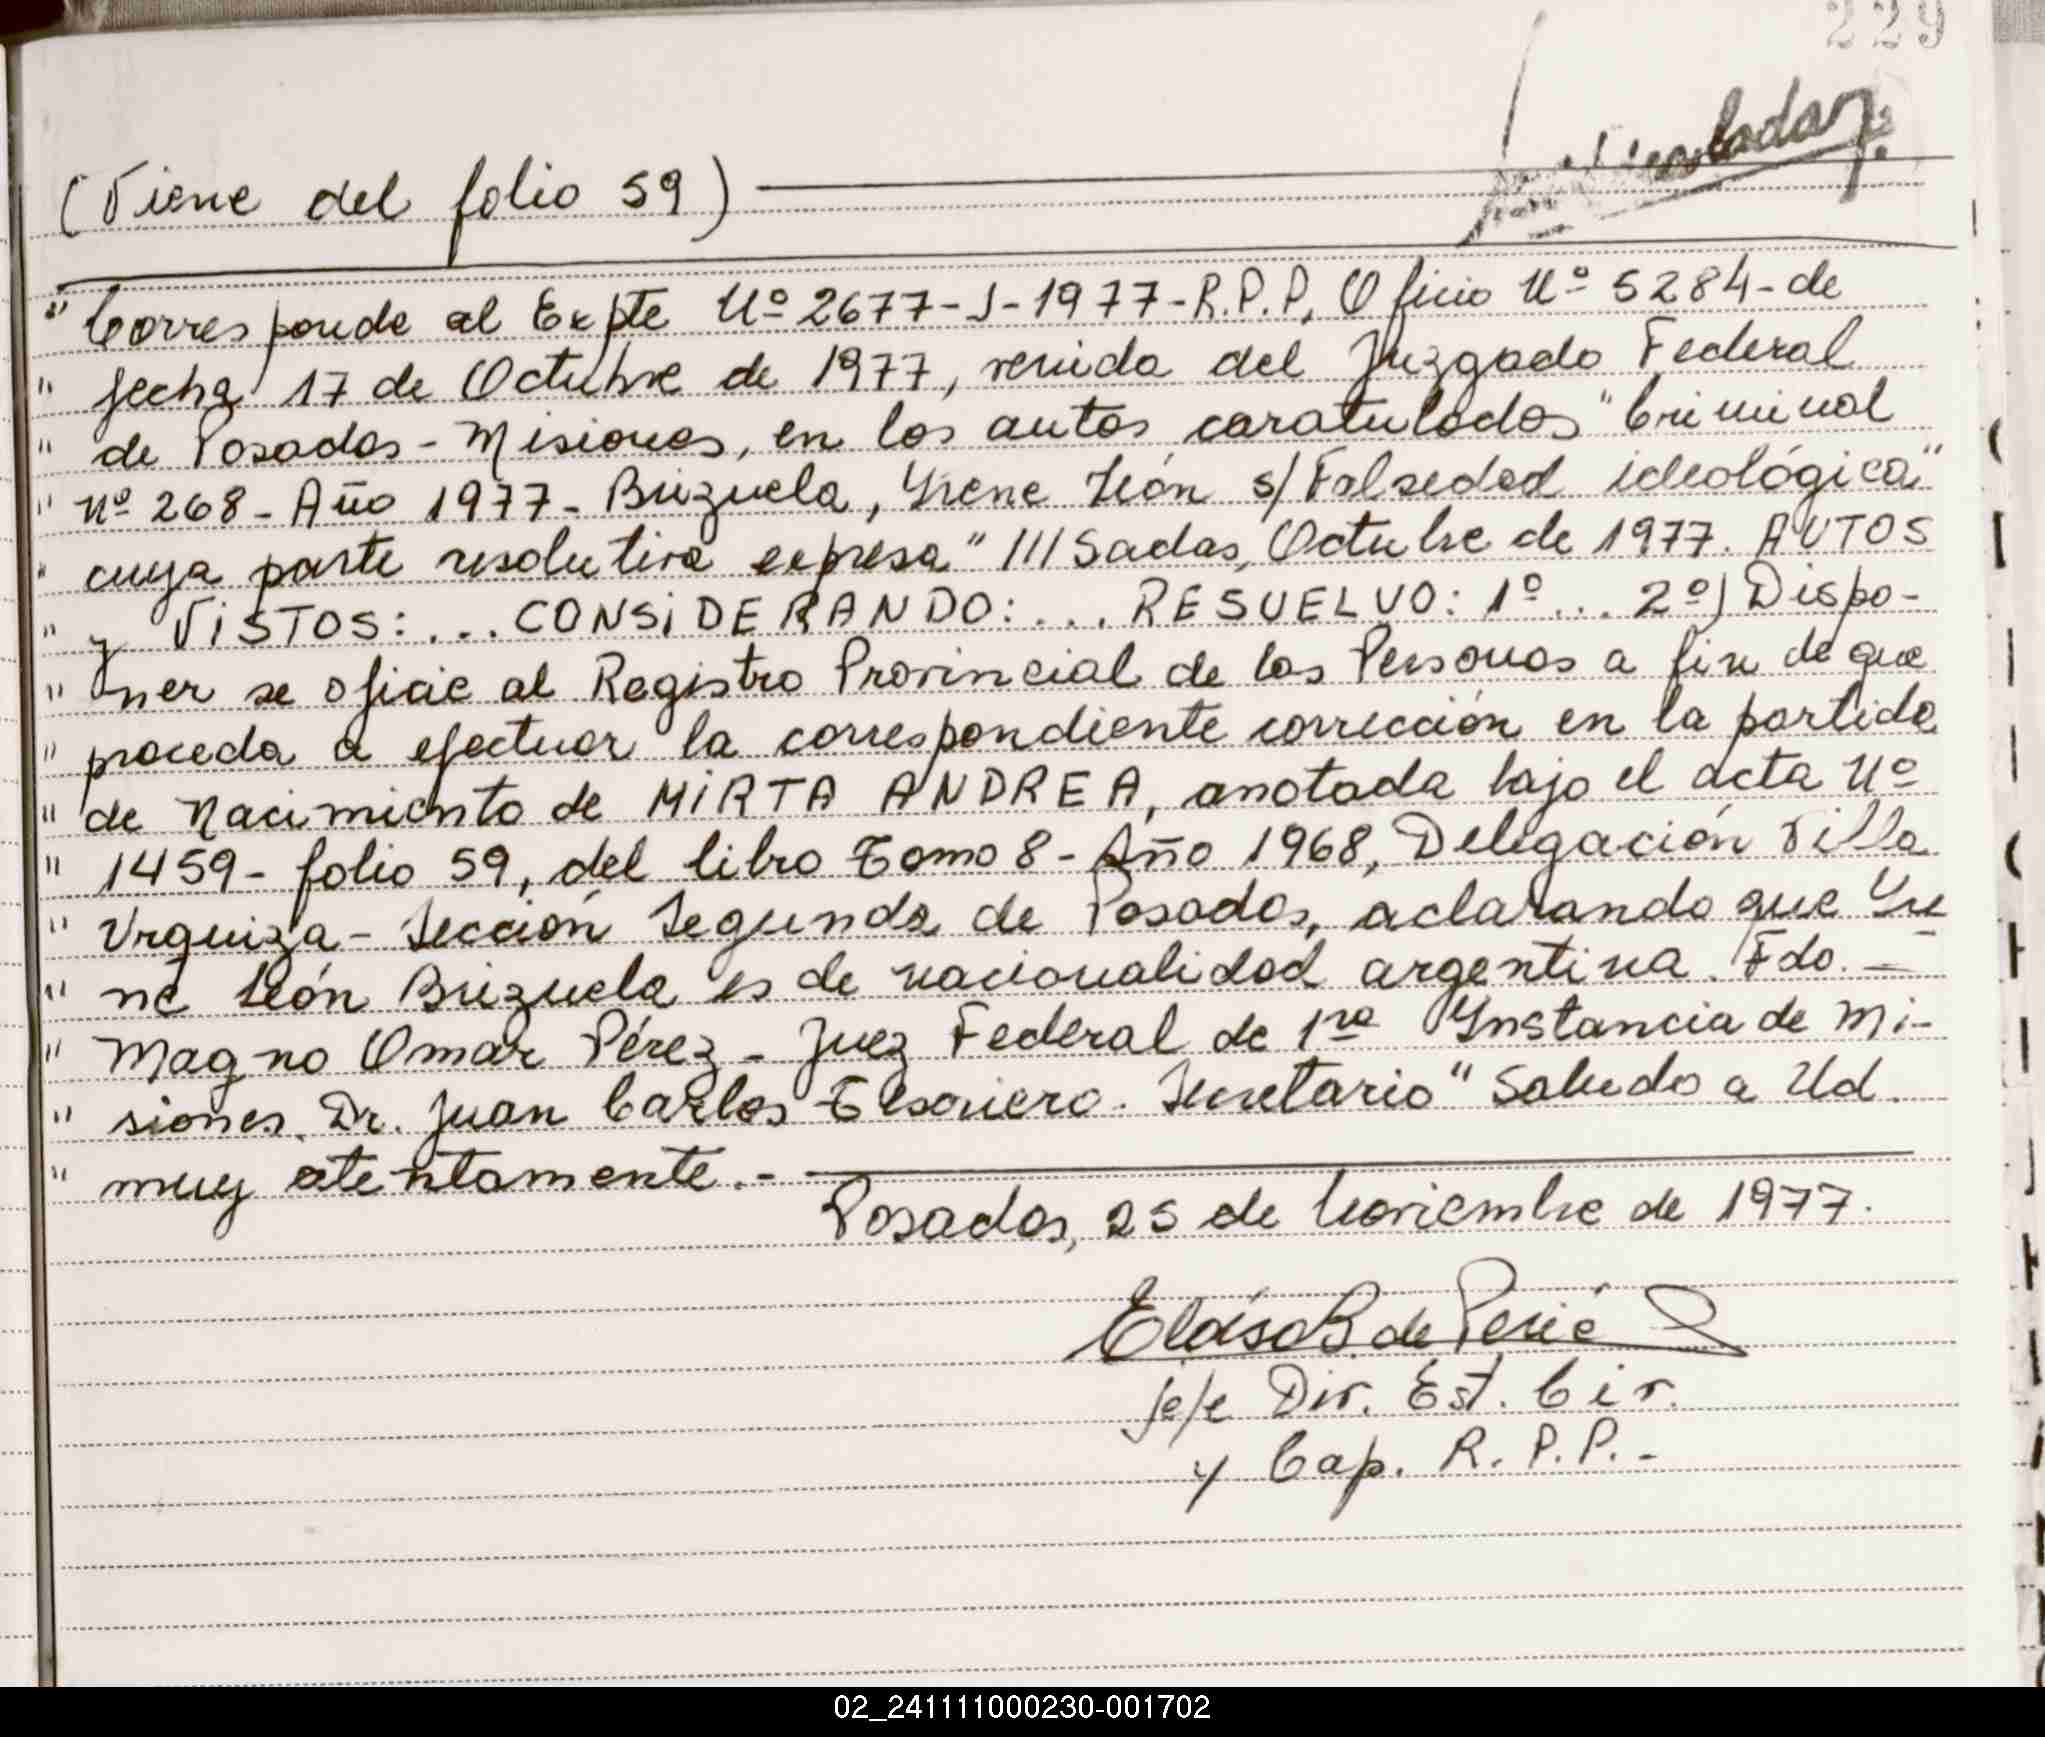 229
(Viene del folio 59)
" Corresponde al Expte Nº 2677-J-1977-R.P.P. Oficio Nº 5284-de
" fecha 17 de Octubre de 1977, venida del Juzgado Federal
" de Posadas-Misiones, en los autos caratulados "Criminal
" Nº 268-Año 1977- Brizuela, Yrene León s/Falsedad ideológica"
" cuya parte resolutiva expresa" ///Sadas, Octubre de 1977. AUTOS
" y ViSTOS:... CONSiDERANDO:... RESUELVO: 1º... 2º) Dispo-
" ner se oficie al Registro Provincial de las Personas a fin de que
" proceda a efectuar la correspondiente corrección en la partida
" de Nacimiento de MiRTA ANDREA, anotada bajo el acta Nº
" 1459- folio 59, del libro Tomo 8-Año 1968, Delegación Villa
" Urquiza-Sección Segunda de Posadas, aclarando que Yre
" ne León Brizuela es de nacionalidad argentina. Fdo.-
" Magno Omar Pérez- Juez Federal de 1ra Ynstancia de Mi-
" siones. Dr. Juan Carlos Tesoriero. Secretario" Saludo a Ud.
" muy atentamente.-
Posadas, 25 de Noviembre de 1977.
de Perié
Jefe Div. Est. Civ.
y Cap. R.P.P.-
02_241111000230-001702